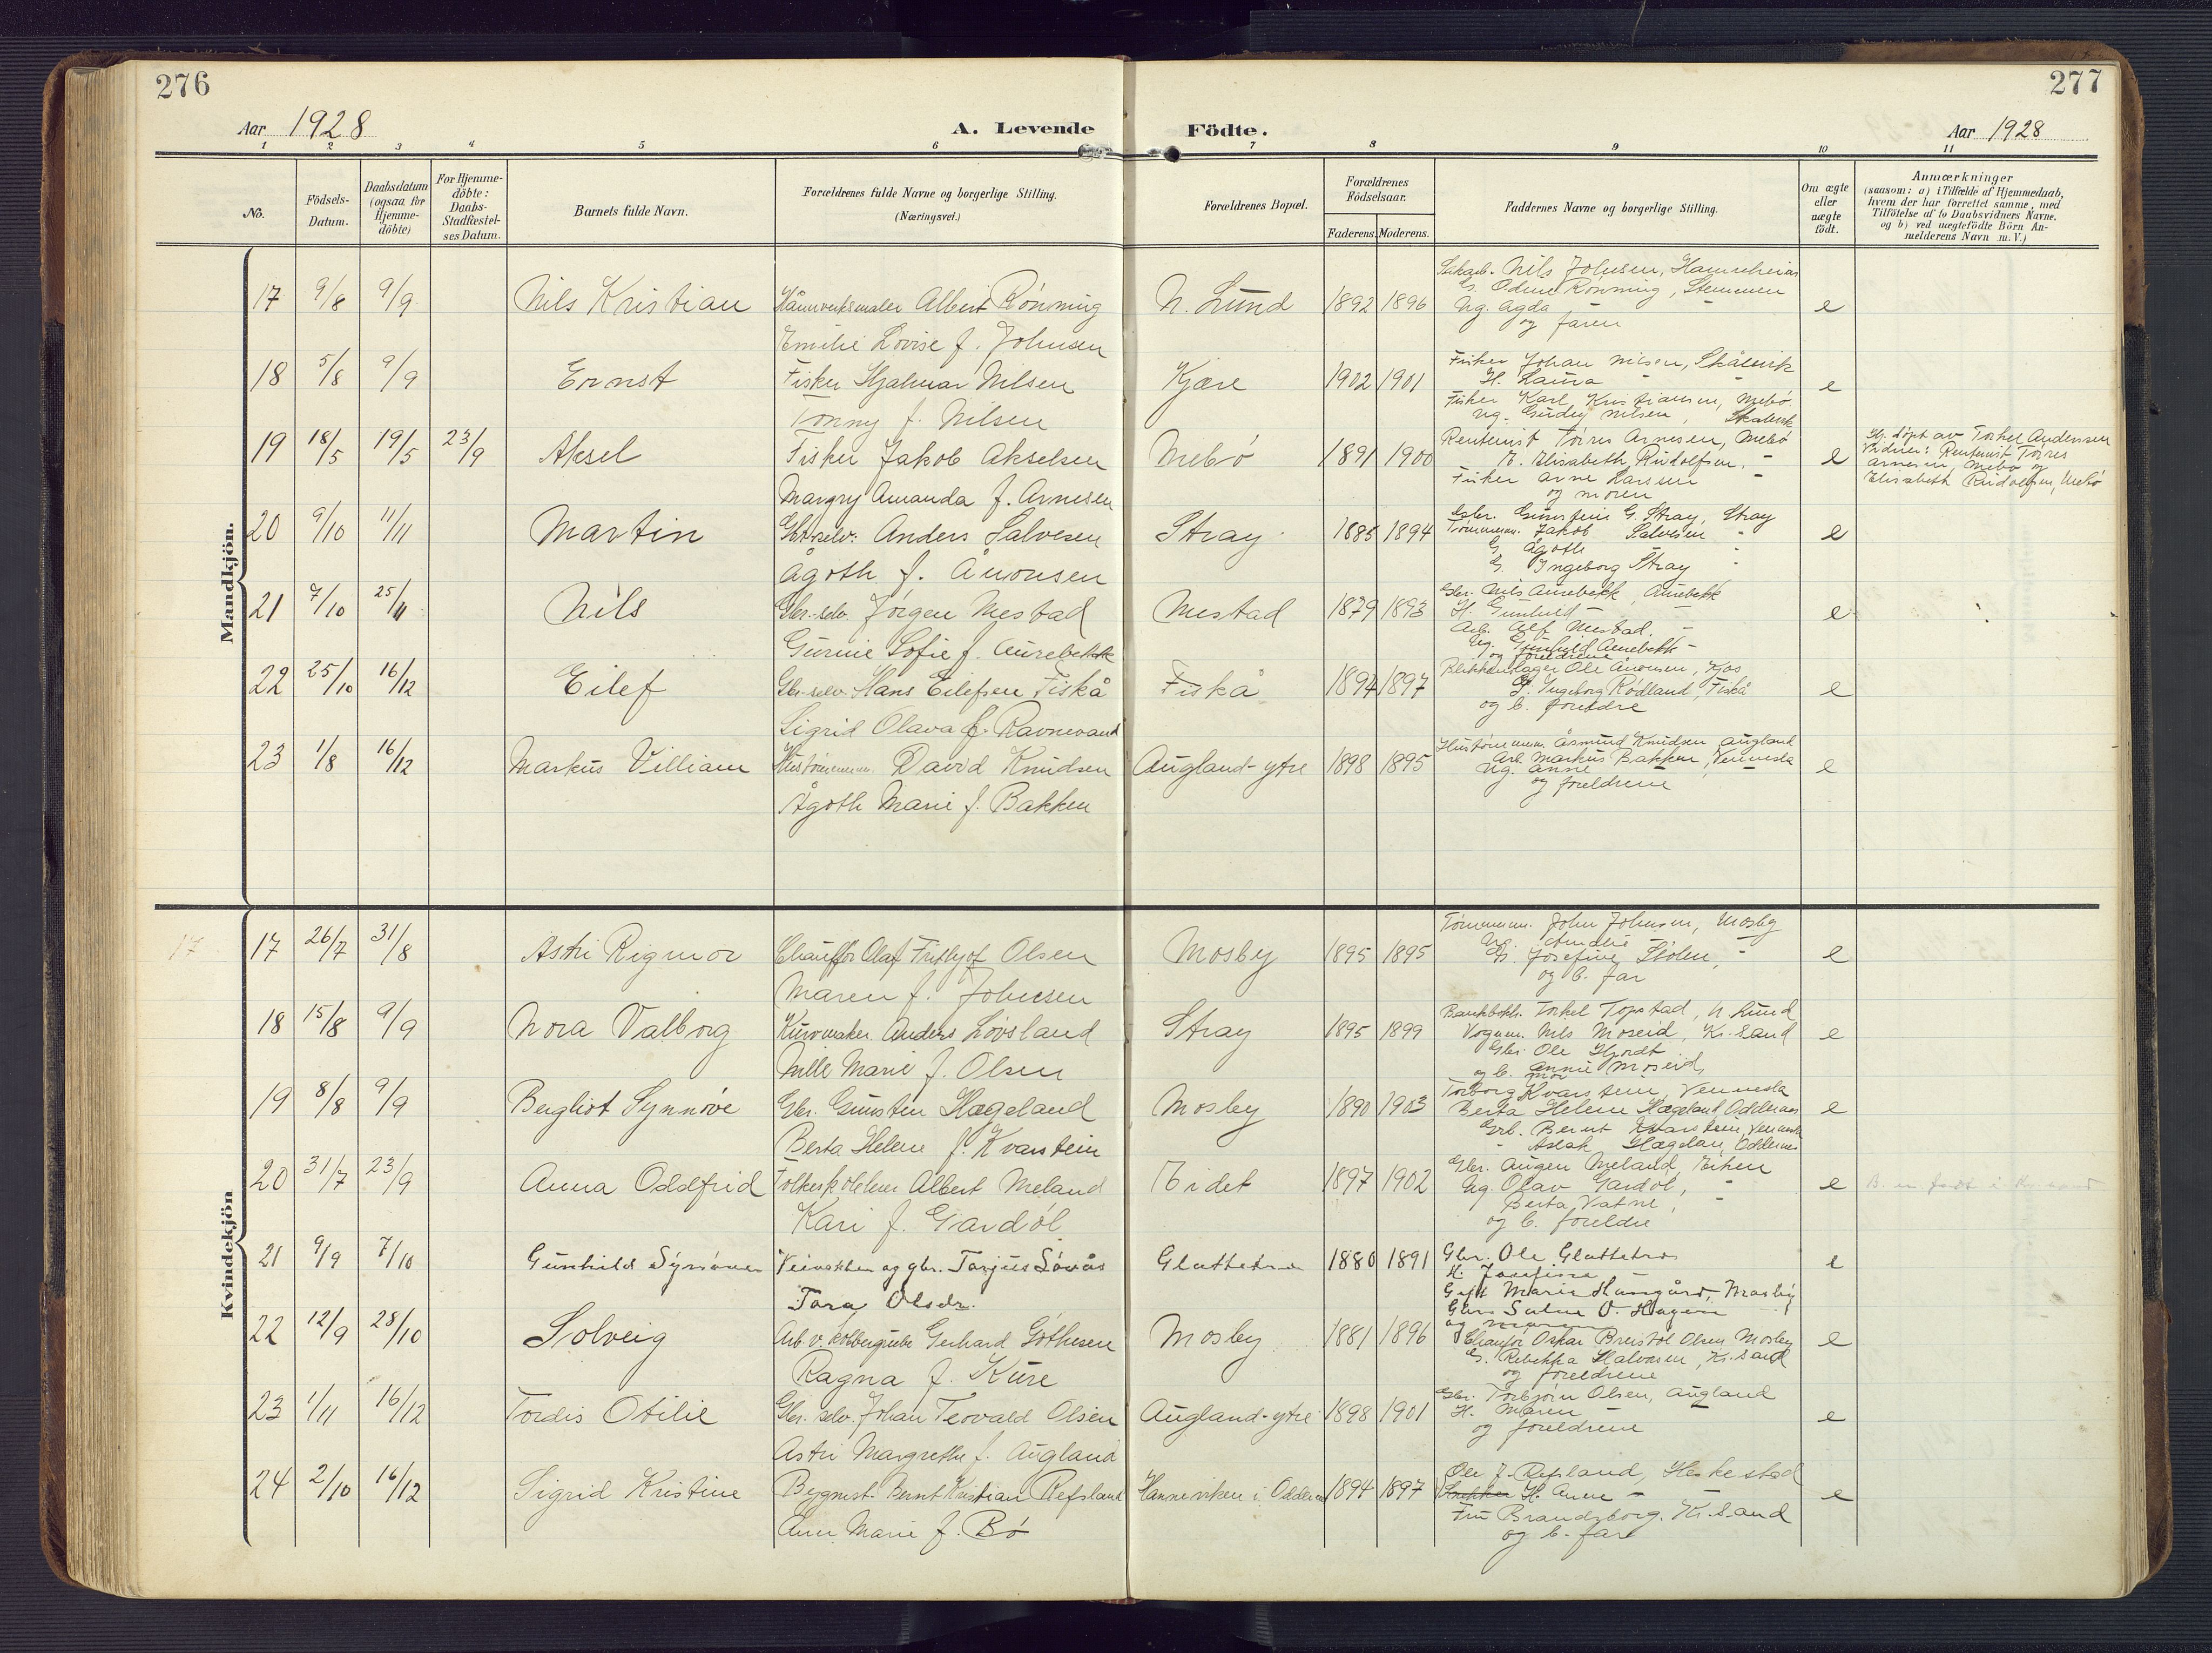 276
277
Aar 1928
A. Levende Födte.
Aar 1928
1 2 3 4 5 6 7 8 9 10 11
No.
Födsels-Datum.
Daabsdatum (ogsaa for Hjemme-döbte)
For Hjemme-döbte: Daabs-Stadfæstel-ses Datum.
Barnets fulde Navn.
Forældrenes fulde Navne og borgerlige Stilling. (Næringsvei.)
Forældrenes Bopæl.
Forældrenes Födselsaar.
Faderens. Moderens.
Faddernes Navne og borgerlige Stilling.
Om ægte eller uægte födt.
Anmærkninger
(saasom: a) i Tilfælde af Hjemmedaab,
hvem der har forrettet samme, med
Tilföielse af to Daabsvidners Navne.
og b) ved uægtefödte Börn An-
melderens Navn m. V.)
Mandkjön.
17 9/8 9/9 Nils Kristian Albert Rönning N. Lund 1892 1896 e
Emilie Lovise f. Johnsen
Nils Johnsen,
G. Odine Rönning, Stemmen
Ug. Agda
og faren
18 5/8 9/9 Ernst Fisker Hjalmar Nilsen Kjære 1902 1901 e
Tonny f. Nilsen
Fisker Johan Nilsen, Skålevik
H. Laura - -
Fisker Karl Kristiansen, Mebö
Ug. Nilsen, Skålevik
19 18/5 19/5 23/9 Aksel Fisker Jakob Akselsen Mebö 1891 1900 e
Margry Amanda f. Arnesen
Rentenist Torres Arnesen, Mebö
E. Elisabeth Rudolfsen, -
Fisker Arne Larsen -
og moren
Hj. döpt av Torkel Andersen
Vidner: Rentenist Torres
Arnesen, Mebö og
Elisabeth Rudolfsen, Mebö
20 9/10 11/11 Martin Gbr.selv. Anders Salvesen Stray 1885 1894 e
Ågoth f. Ånonsen
Gbr. G. Stray, Stray
Tömmerm. Jakob Salvesen -
G. Ågoth -
G. Ingeborg Stray -
21 7/10 25/11 Nils Gbr.-selv. Jörgen Mestad Mestad 1879 1893 e
Gurine Sofie f. Aurebekk
Gbr. Nils Aurebekk, Aurebekk
H. Gunhild - -
Arb. Alf Mestad. -
Ug. Gunhild Aurebekk -
og foreldrene
22 25/10 16/12 Eilef Gbr-selv. Hans Eilefsen Fiskå Fiskå 1894 1897 e
Sigrid Olava f. Ravnevand
Blikkenslager Ole Ånonsen, Kjos
G. Ingeborg Rödland, Fiskå
og b. foreldre
23 1/8 16/12 Markus Villiam Hustömmerm. David Knudsen Augland-ytre 1898 1895 e
Ågoth Marie f. Bakken
Hustömmerm. Åsmund Knudsen Augland
Arb. Markus Bakken, Vennesla
Ug. Anne - -
og foreldrene
Kvindekjön
17
17 26/7 31/8 Astri Rigmor Chaufför Olaf Fritjof Olsen Mosby 1895 1895 e
Maren f. Johnsen
Tömmerm. John Johnsen, Mosby
Ug. Amalie - -
G. Josefine Stölen, -
og b. far
18 15/8 9/9 Nora Valborg Kurvmaker Anders Lövsland Stray 1895 1899 e
Mille Marie f. Olsen
Torkel Topstad, N. Lund
Vognm. Nils Moseid, Kr. Sand
Gbr. Ole Hjordt
Annie Moseid,
og b. mor
19 8/8 9/9 Bergliot Synnöve Gbr. Gunsten Hægeland Mosby 1890 1903 e
Berta Helene f. Kvarstein
Torborg Kvarstein, Vennesla
Berta Helene Hægeland, Oddernes
Gbr. Bernt Kvarstein, Vennesla
- Aslak Hægeland, Oddernes
20 31/7 23/9 Anna Oddfrid Folkeskolelærer Albert Meland Eidet 1897 1902 e
Kari f. Gardöl
Gbr. Augen Meland, Eiken
Ug. Olav Gardöl, -
Berta Vatne, -
og b. foreldre
B. er födt i Kr.sand
21 9/9 7/10 Gunhild Synnöve Veivokter og gbr. Tarjus Sövås Glattetre 1880 1891 e
Tora Olsdr.
Gbr. Ole Glattetre
H. Josefine -
Gift Marie Haugård, Mosby
Gbr. Salve O. Hagen -
og moren
22 12/9 28/10 Solveig Arb. v. kobbergrube Gerhard Göthesen Mosby 1881 1896 e
Ragna f. Kure
Chaufför Oskar Olsen Mosby
G. Rebekka Halvorsen, Kr. Sand
og foreldrene
23 1/11 16/12 Tordis Otilie Gbr. selv. Johan Teovald Olsen Augland-ytre 1898 1901 e
Astri Margrethe f. Augland
Gbr. Torbjörn Olsen, Augland
H. Maren - -
og foreldrene
24 2/10 16/12 Sigrid Kristine Bygmst. Bernt Kristian Refsland Hanneviken i Oddernes 1894 1897 e
Ann Marie f. Bö
Ole J. Refsland, Heskestad
H. Anne - -
Fru Brandsborg, Kr. Sand
og b. fare